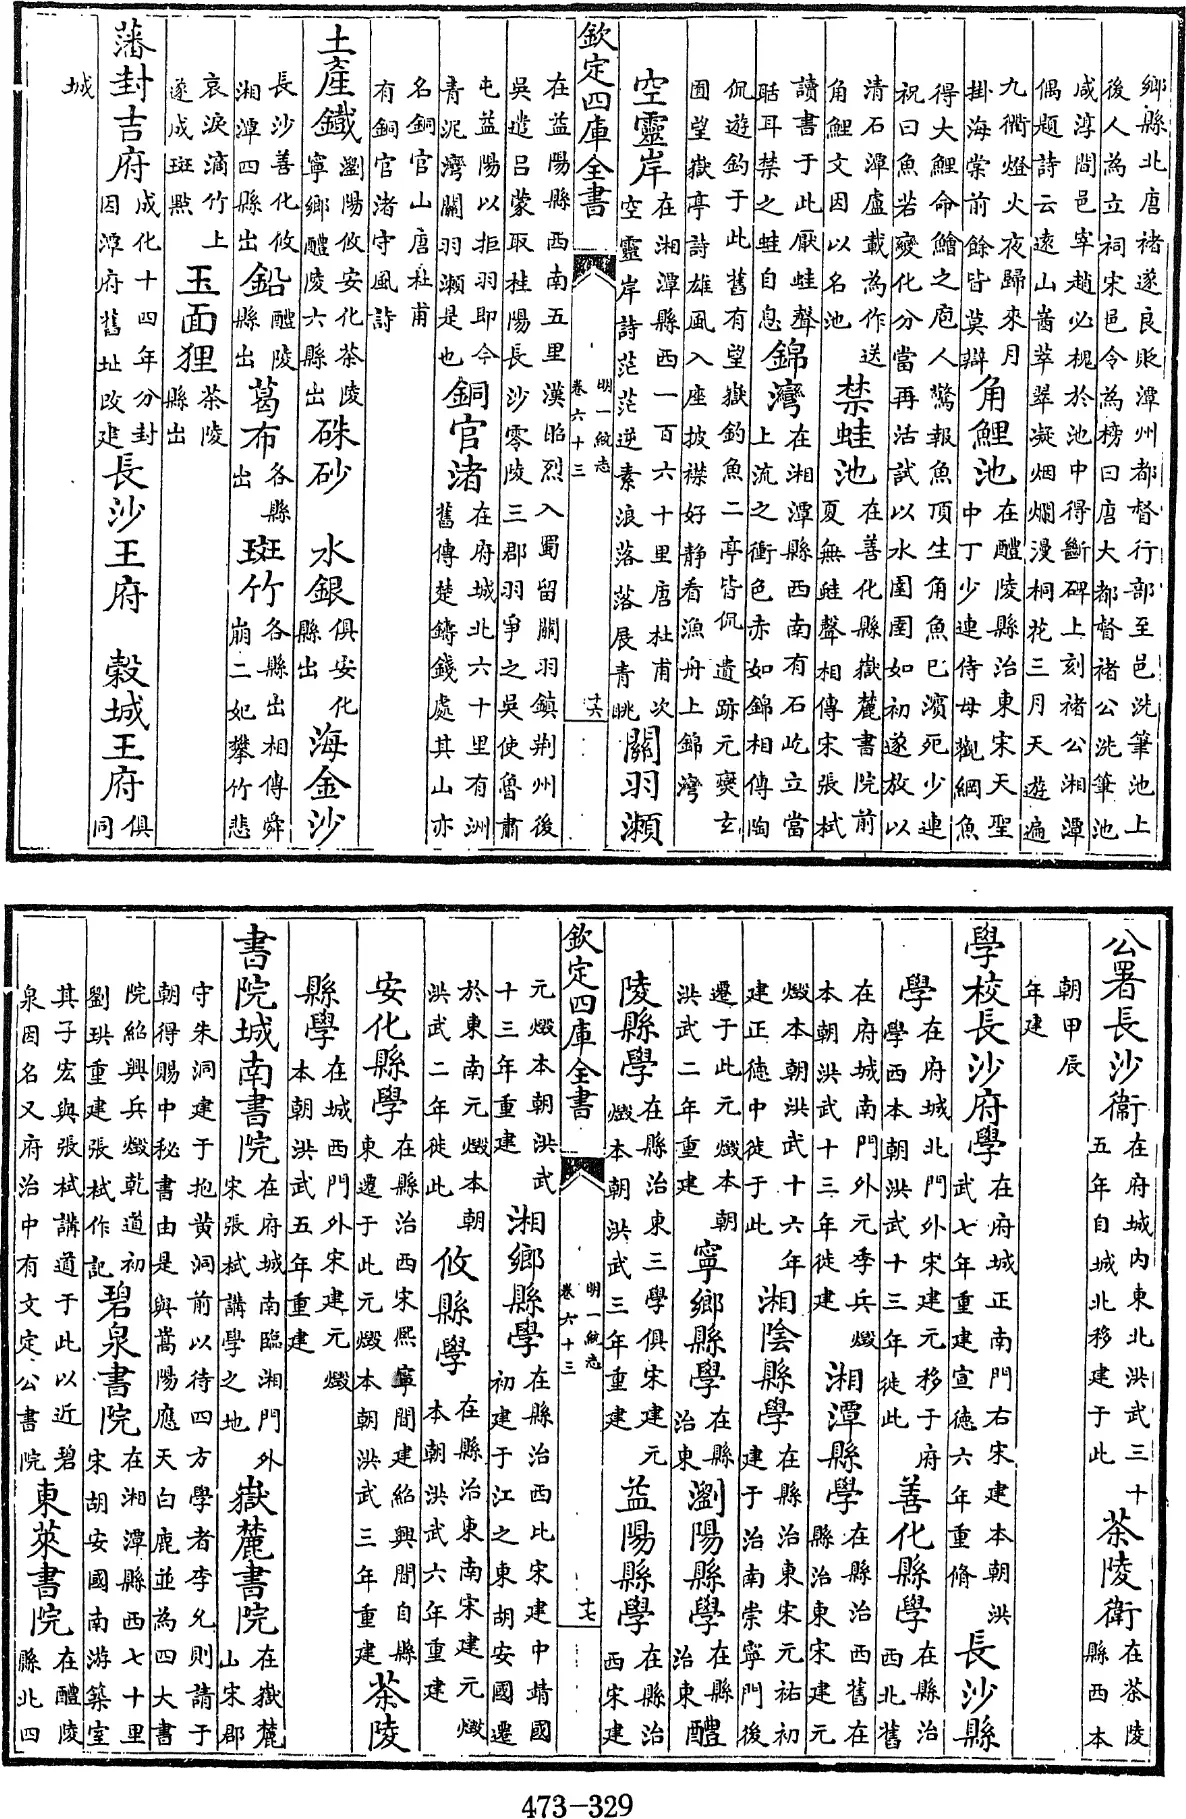 鄉縣北唐褚遂良貶潭州都督行部至邑洗筆池上
後人為立祠宋邑令為榜曰唐大都督褚公洗筆池
咸淳間邑宰趙必棍於池中得斷碑上刻褚公湘潭
偶題詩云遠山崷崒翠凝烟爛漫桐花三月天遊遍
九衢燈火夜歸來月
掛海棠前餘皆莫辯
角鯉池
在醴陵縣治東宋天聖
中丁少連侍母觀網魚
得大鯉命鱠之庖人驚報魚頂生角魚已濱死少連
祝曰魚若變化分當再活試以水圉圉如初遂放以
清石潭盧載為作送
角鯉文因以名池
禁蛙池
在善化縣嶽麓書院前
夏無蛙聲相傳宋張栻
讀書于此厭蛙聲
聒耳禁之蛙自息
錦灣
在湘潭縣西南有石屹立當
上流之衝色赤如錦相傳陶
侃遊釣于此舊有望嶽釣魚二亭皆侃遺跡元奭玄
圃望嶽亭詩雄風入座披襟好靜看漁舟上錦灣
空靈岸
在湘潭縣西一百六十里唐杜甫次
空靈岸詩茫茫逆素浪落落展青眺
關羽瀬
欽定四庫全書
明一統志
卷六十三
十六
在益陽縣西南五里漢昭烈入蜀留關羽鎮荆州後
吳遣呂蒙取桂陽長沙零陵三郡羽爭之吳使魯肅
屯益陽以拒羽即今
青泥灣關羽瀬是也
銅官渚
在府城北六十里有洲
舊傳楚鑄錢處其山亦
名銅官山唐杜甫
有銅官渚守風詩
土產鐵
瀏陽攸安化茶陵
寧鄉醴陵六縣出
硃砂 水銀
俱安化
縣出
海金沙
長沙善化攸
湘潭四縣出
鉛
醴陵
縣出
葛布
各縣
出
斑竹
各縣出相傳舜
崩二妃攀竹悲
哀淚滴竹上
遂成斑點
玉面狸
茶陵
縣出
藩封吉府
成化十四年分封
因潭府舊址改建
長沙王府 榖城王府
俱
同
城
公署長沙衞
在府城內東北洪武三十
五年自城北移建于此
茶陵衞
在茶陵
縣西本
朝甲辰
年建
學校長沙府學
在府城正南門右宋建本朝洪
武七年重建宣德六年重脩
長沙縣
學
在府城北門外宋建元移于府
學西本朝洪武十三年徙此
善化縣學
在縣治
西北舊
在府城南門外元季兵燬
本朝洪武十三年徙建
湘潭縣學
在縣治西舊在
縣治東宋建元
燬本朝洪武十六年
建正德中徙于此
湘陰縣學
在縣治東宋元祐初
建于治南崇寧門後
遷于此元燬本朝
洪武二年重建
寧鄉縣學
在縣
治東
瀏陽縣學
在縣
治東
醴
陵縣學
在縣治東三學俱宋建元
燬本朝洪武三年重建
益陽縣學
在縣治
西宋建
欽定四庫全書
明一統志
卷六十三
十七
元燬本朝洪武
十三年重建
湘鄉縣學
在縣治西北宋建中靖國
初建于江之東胡安國遷
於東南元燬本朝
洪武二年徙此
攸縣學
在縣治東南宋建元燬
本朝洪武六年重建
安化縣學
在縣治西宋熙寧間建紹興間自縣
東遷于此元燬本朝洪武三年重建
茶陵
縣學
在城西門外宋建元燬
本朝洪武五年重建
書院城南書院
在府城南臨湘門外
宋張栻講學之地
嶽麓書院
在嶽麓
山宋郡
守朱洞建于抱黃洞前以待四方學者李允則請于
朝得賜中秘書由是與嵩陽應天白鹿並為四大書
院紹興兵燬乾道初
劉珙重建張栻作記
碧泉書院
在湘潭縣西七十里
宋胡安國南游築室
其子宏與張栻講道于此以近碧
泉因名又府治中有文定公書院
東萊書院
在醴陵
縣北四
473-329